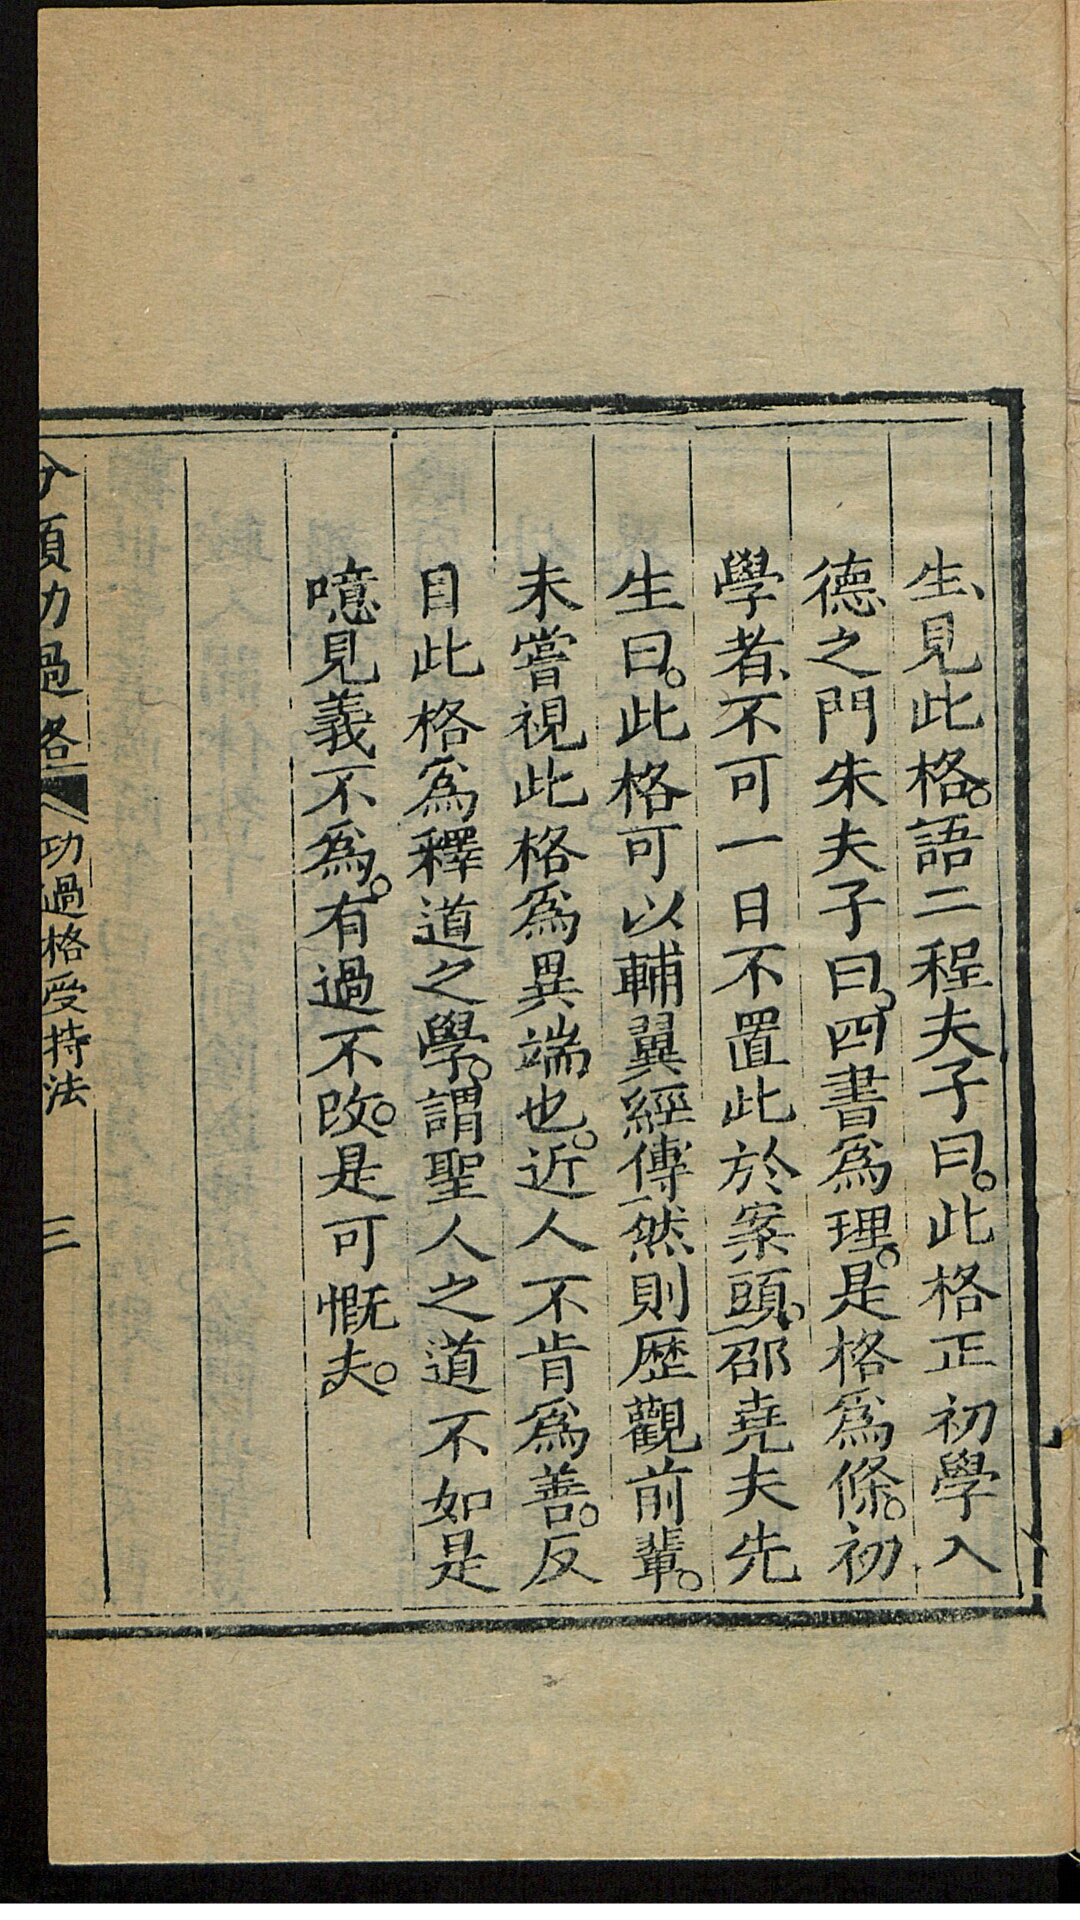 生、見此格。語二程夫子曰。此格正初學入
德之門朱夫子曰。四書爲理。是格爲條。初
學者、不可一日不置此於案頭、邵堯夫先
生曰。此格可以輔翼經傳然則歷觀前輩。
未嘗視此格爲異端也。近人不肯爲善。反
目此格爲釋道之學。謂聖人之道不如是
噫見義不爲。有過不改。是可慨夫。
分類功過格
功過格受持法
三